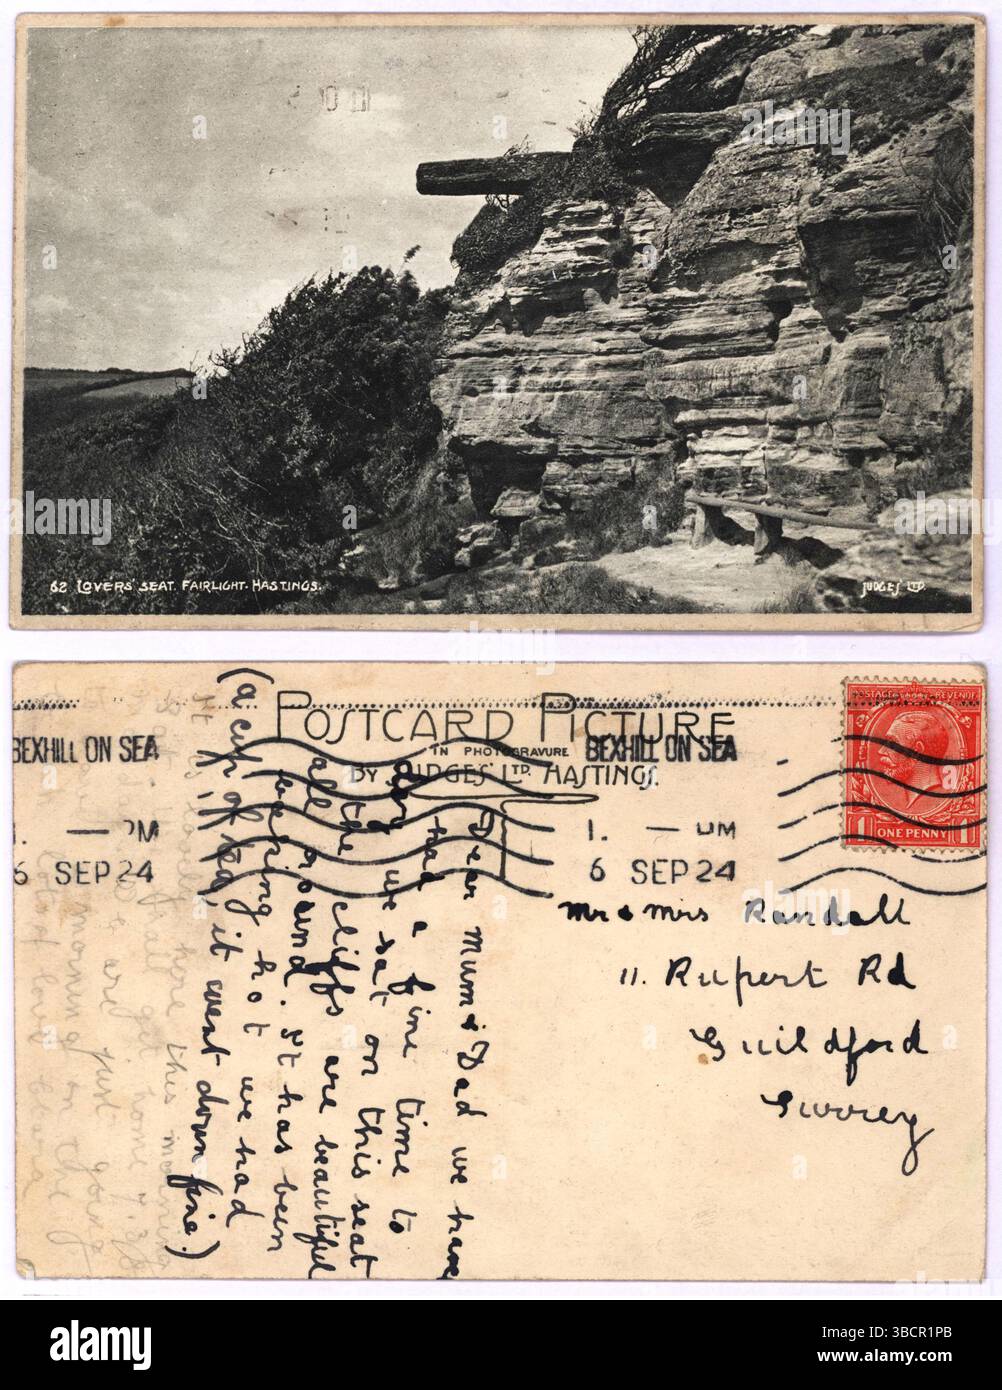 62 LOVERS' SEAT. FAIRLIGHT. HASTINGS.
JUDGES LTD.
POSTCARD PICTURE
IN PHOTOGRAVURE
BY JUDGES' LTD. HASTINGS.
BEXHILL ON SEA
BEXHILL ON SEA
6 SEP 24
6 SEP 24
POSTAGE REVENUE
1 ONE PENNY 1
Mr & Mrs Randall
11. Rupert Rd
Guildford
Surrey
Dear Mum & Dad we have
had a fine time to
day we sat on this seat
the cliffs are beautiful
all round. It has been
boiling hot we had
(a cup of tea, it went down fine.)
lovely here this morning
shall get home
are just going
morning on the
love
alamy
Image ID: 2BCR1PB
www.alamy.com